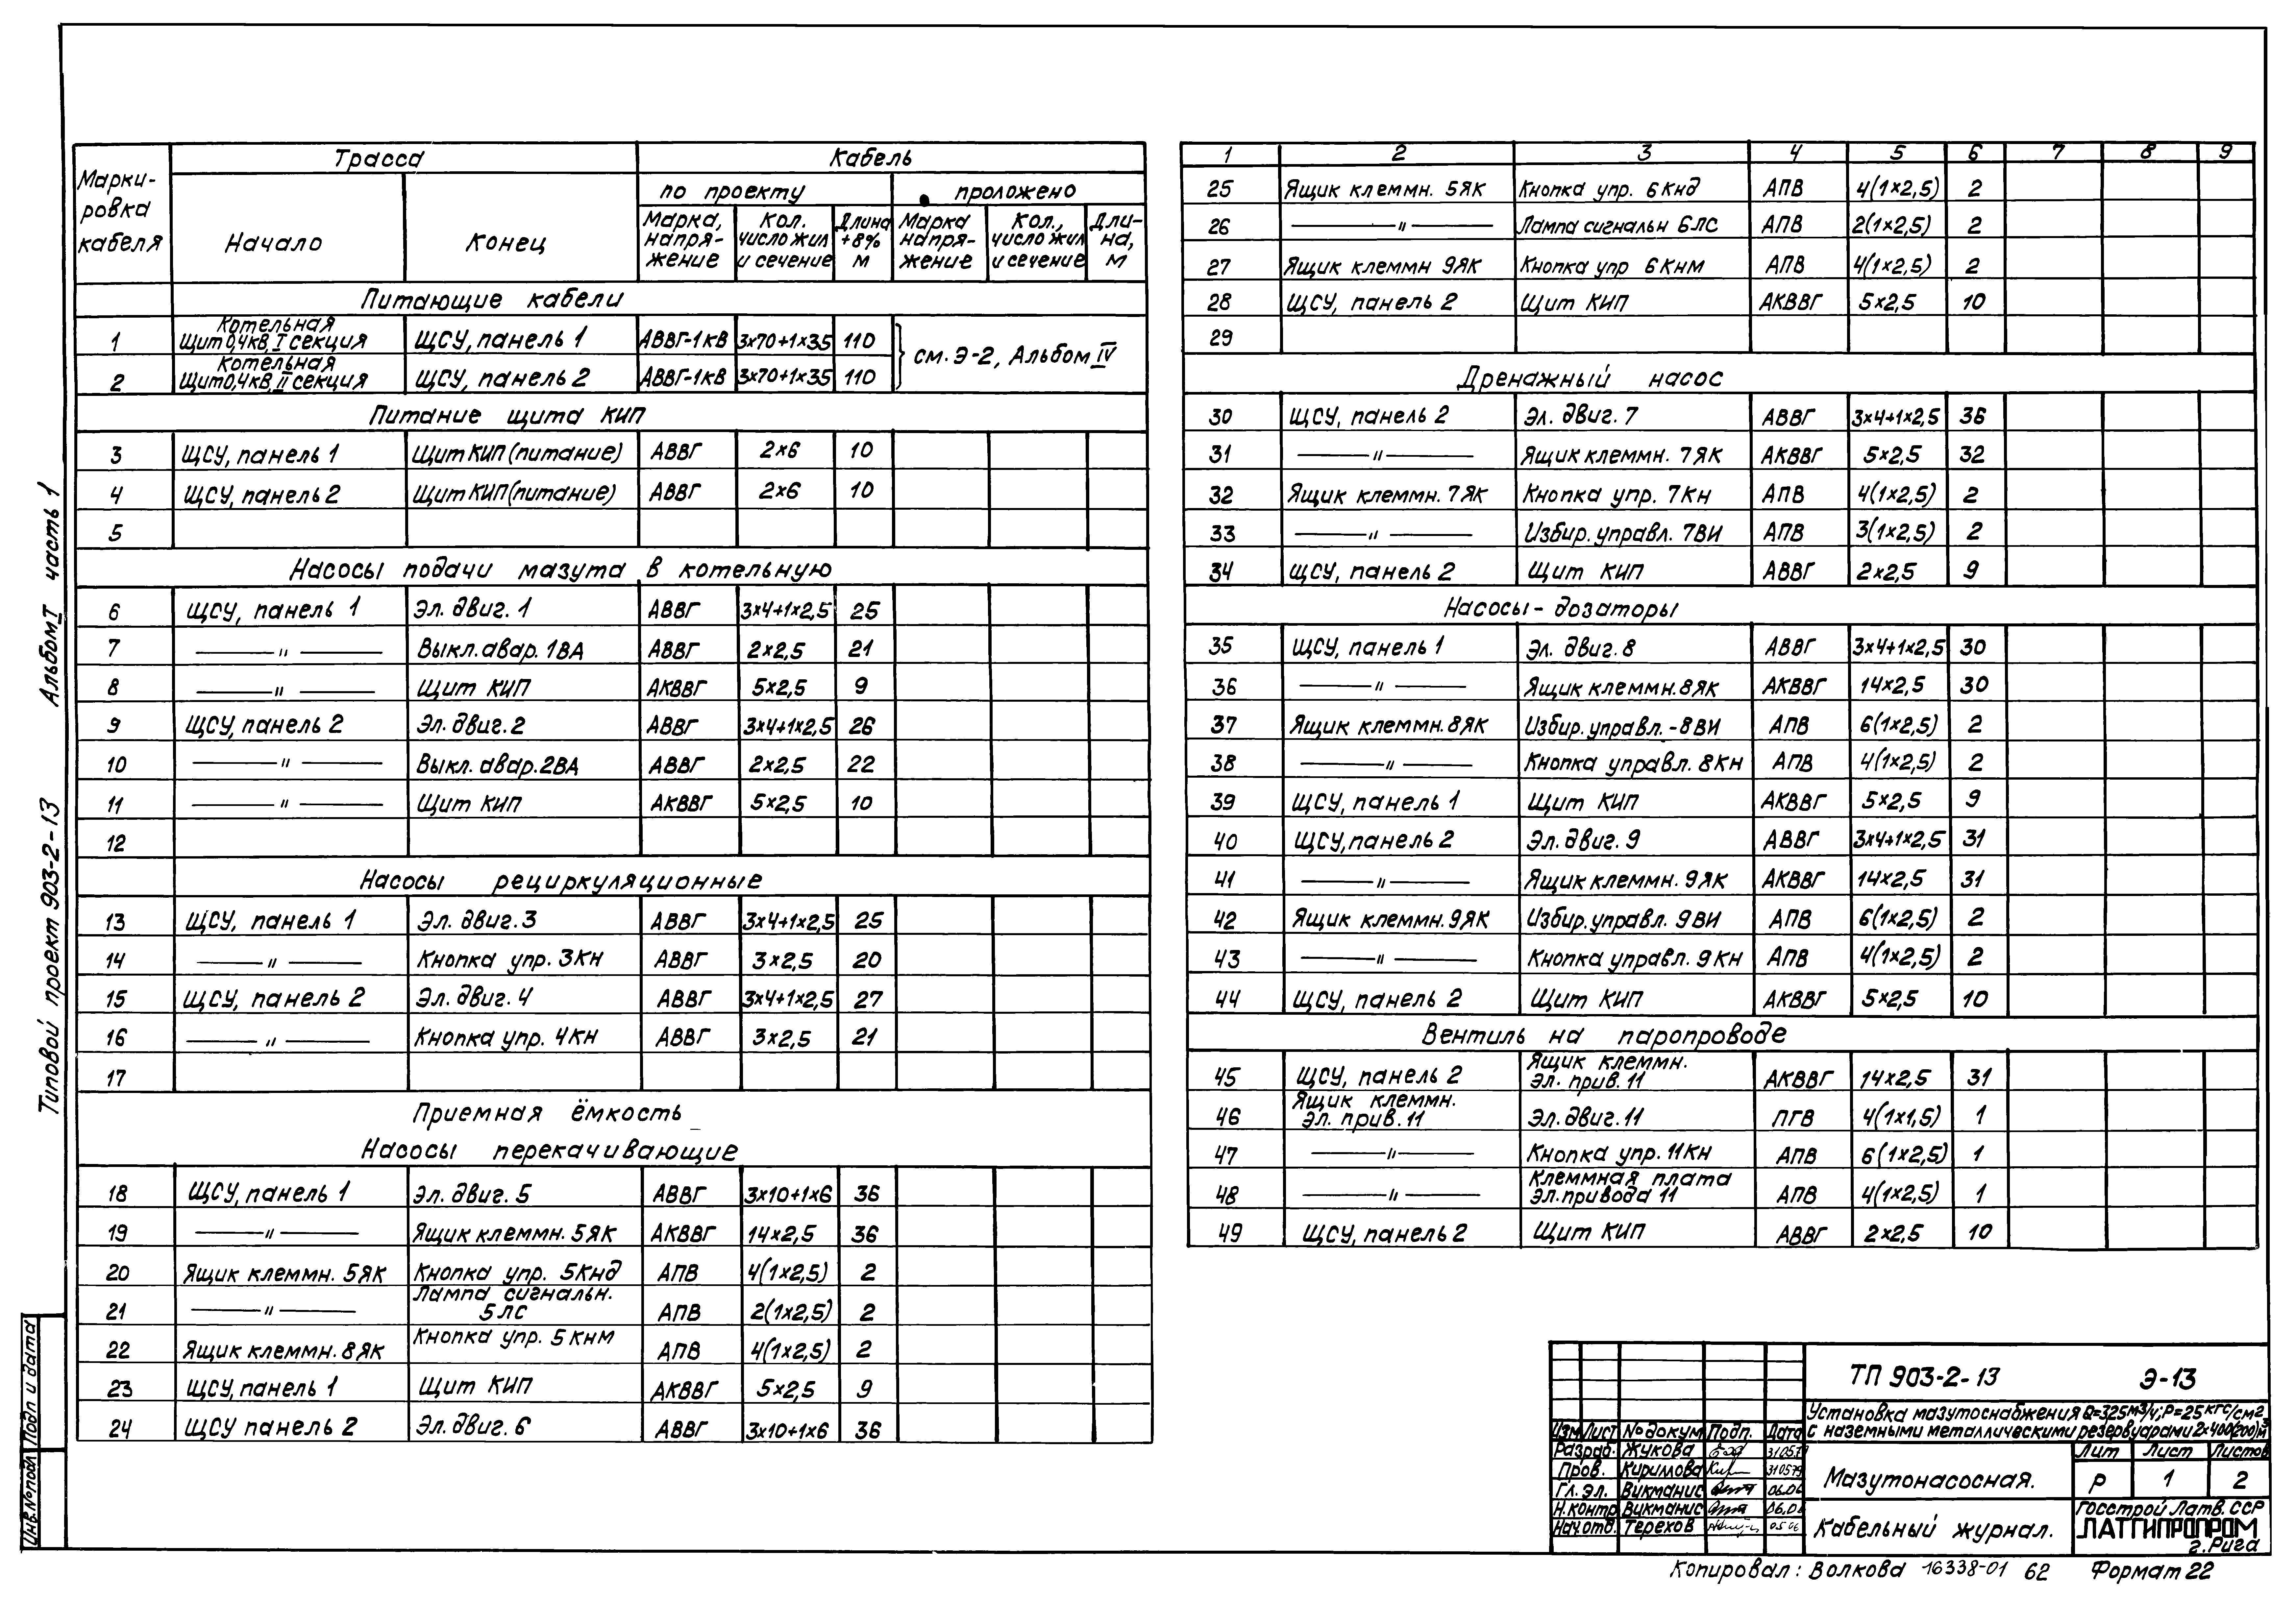 Типовой проект 903-2-13 Альбом I часть 1
Инв.№подл Подп и дата
Марки-ровка кабеля Трасса Кабель
по проекту проложено
Начало Конец Марка, напря-жение Кол. число жил и сечение Длина +8% м Марка напря-жение Кол., число жил и сечение Дли-на, м
Питающие кабели
1 Котельная Щит 0,4кв, I секция ЩСУ, панель 1 АВВГ-1кв 3х70+1х35 110
2 Котельная Щит 0,4кв, II секция ЩСУ, панель 2 АВВГ-1кв 3х70+1х35 110
} см. Э-2, Альбом IV
Питание щита КИП
3 ЩСУ, панель 1 Щит КИП (питание) АВВГ 2х6 10
4 ЩСУ, панель 2 Щит КИП (питание) АВВГ 2х6 10
5
Насосы подачи мазута в котельную
6 ЩСУ, панель 1 Эл. двиг. 1 АВВГ 3х4+1х2,5 25
7 —"— Выкл. авар. 1ВА АВВГ 2х2,5 21
8 —"— Щит КИП АКВВГ 5х2,5 9
9 ЩСУ, панель 2 Эл. двиг. 2 АВВГ 3х4+1х2,5 26
10 —"— Выкл. авар. 2ВА АВВГ 2х2,5 22
11 —"— Щит КИП АКВВГ 5х2,5 10
12
Насосы рециркуляционные
13 ЩСУ, панель 1 Эл. двиг. 3 АВВГ 3х4+1х2,5 25
14 —"— Кнопка упр. 3Кн АВВГ 3х2,5 20
15 ЩСУ, панель 2 Эл. двиг. 4 АВВГ 3х4+1х2,5 27
16 —"— Кнопка упр. 4Кн АВВГ 3х2,5 21
17
Приемная ёмкость
Насосы перекачивающие
18 ЩСУ, панель 1 Эл. двиг. 5 АВВГ 3х10+1х6 36
19 —"— Ящик клеммн. 5ЯК АКВВГ 14х2,5 36
20 Ящик клеммн. 5ЯК Кнопка упр. 5Кнд АПВ 4(1х2,5) 2
21 —"— Лампа сигнальн. 5ЛС АПВ 2(1х2,5) 2
22 Ящик клеммн. 8ЯК Кнопка упр. 5Кнм АПВ 4(1х2,5) 2
23 ЩСУ, панель 1 Щит КИП АКВВГ 5х2,5 9
24 ЩСУ панель 2 Эл. двиг. 6 АВВГ 3х10+1х6 36
1 2 3 4 5 6 7 8 9
25 Ящик клеммн. 5ЯК Кнопка упр. 6Кнд АПВ 4(1х2,5) 2
26 —"— Лампа сигнальн 6ЛС АПВ 2(1х2,5) 2
27 Ящик клеммн 9ЯК Кнопка упр 6Кнм АПВ 4(1х2,5) 2
28 ЩСУ, панель 2 Щит КИП АКВВГ 5х2,5 10
29
Дренажный насос
30 ЩСУ, панель 2 Эл. двиг. 7 АВВГ 3х4+1х2,5 36
31 —"— Ящик клеммн. 7ЯК АКВВГ 5х2,5 32
32 Ящик клеммн. 7ЯК Кнопка упр. 7Кн АПВ 4(1х2,5) 2
33 —"— Избир. управл. 7ВИ АПВ 3(1х2,5) 2
34 ЩСУ, панель 2 Щит КИП АВВГ 2х2,5 9
Насосы-дозаторы
35 ЩСУ, панель 1 Эл. двиг. 8 АВВГ 3х4+1х2,5 30
36 —"— Ящик клеммн. 8ЯК АКВВГ 14х2,5 30
37 Ящик клеммн. 8ЯК Избир. управл. -8ВИ АПВ 6(1х2,5) 2
38 —"— Кнопка управл. 8Кн АПВ 4(1х2,5) 2
39 ЩСУ, панель 1 Щит КИП АКВВГ 5х2,5 9
40 ЩСУ, панель 2 Эл. двиг. 9 АВВГ 3х4+1х2,5 31
41 —"— Ящик клеммн. 9ЯК АКВВГ 14х2,5 31
42 Ящик клеммн. 9ЯК Избир. управл. 9ВИ АПВ 6(1х2,5) 2
43 —"— Кнопка управл. 9Кн АПВ 4(1х2,5) 2
44 ЩСУ, панель 2 Щит КИП АКВВГ 5х2,5 10
Вентиль на паропроводе
45 ЩСУ, панель 2 Ящик клеммн. Эл. прив. 11 АКВВГ 14х2,5 31
46 Ящик клеммн. Эл. прив. 11 Эл. двиг. 11 ПГВ 4(1х1,5) 1
47 —"— Кнопка упр. 11Кн АПВ 6(1х2,5) 1
48 —"— Клеммная плата Эл. привода 11 АПВ 4(1х2,5) 1
49 ЩСУ, панель 2 Щит КИП АВВГ 2х2,5 10
ТП 903-2-13 Э-13
Установка мазутоснабжения Q=325м³/ч; Р=25кгс/см2
с наземными металлическими резервуарами 2х400(200)м³
Изм Лист №докум Подп. Дата
Разраб. Жукова 31.05.79
Пров. Кириллова 31.05.79
Гл. эл. Викманис 06.06
Н.контр Викманис 06.06
Нач.отд. Терехов 05.06
Мазутонасосная.
Лит Лист Листов
Р 1 2
Кабельный журнал.
Госстрой Латв. ССР
ЛАТГИПРОПРОМ
г. Рига
Копировал: Волкова 16338-01 62 Формат 22